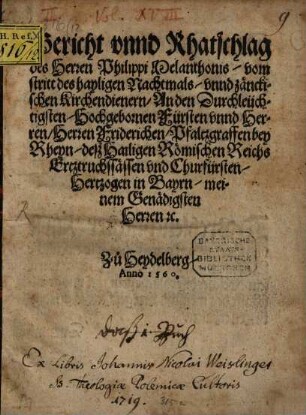 II. Vol. XVIII
9
H. Ref.
816
Bericht vnnd Rhatschlag
des Herren Philippi Melanthonis/ vom
stritt des hayligen Nachtmals/ vnnd zänck-
ischen Kirchendienern/ An den Durchleüch-
tigsten/ Hochgebornen Fürsten vnnd Her-
ren/ Herren Friderichen/ Pfaltzgraffen bey
Rheyn/ deß Hailigen Römischen Reichs
Ertztruchsässen vnd Churfürsten/
Hertzogen in Bayrn/ mei-
nem Genädigsten
Herren ꝛc.
Zů Heydelberg/
Anno 1560.
BAYERISCHE
STAATS-
BIBLIOTHEK
MUENCHEN
Ex Libris Johannis Nicolai Weislinger
SS Theologiæ Polemicæ Cultoris
1719.